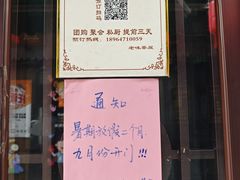 团购 聚会 私厨 提前三天
预订热线：18964710059
通知
暑期放假二个月
九月份开门!!!